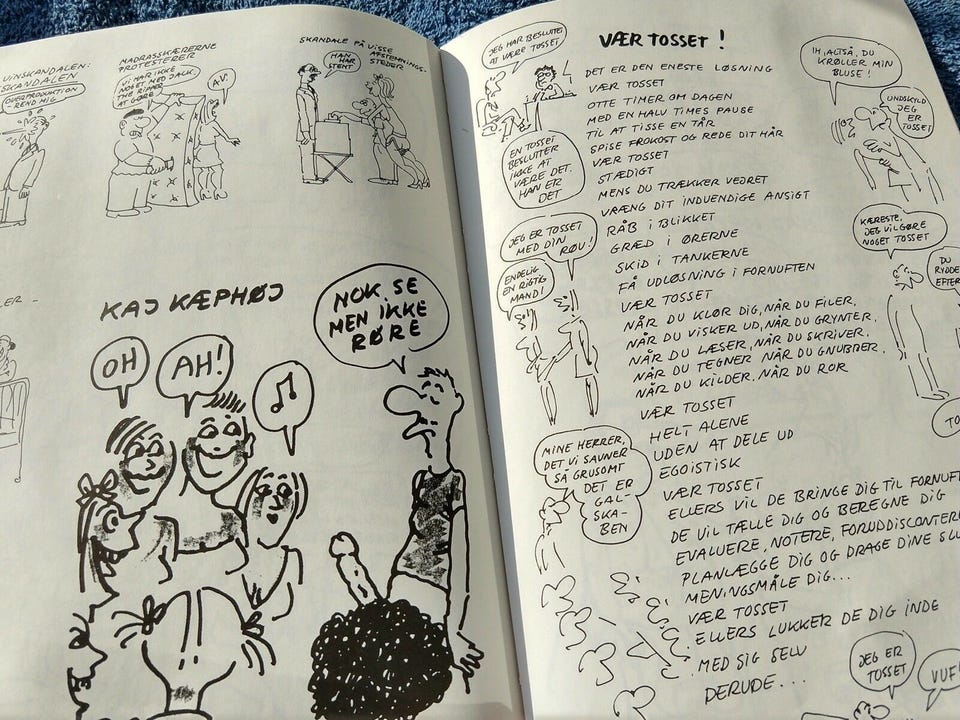 VINSKANDALEN:
SKANDALEN
OVERPRODUKTION
REND MIG
MADRASSKÆRERNE
PROTESTERER
VI HAR IKKE
NOGET MED JACK
THE RIPPER
AT GØRE
AV!
SKANDALE PÅ VISSE
AFSTEMNINGS-
STEDER
MAN
HAR
STEMT
KAJ KÆPHØJ
OH
AH!
NOK SE
MEN IKKE
RØRE
VÆR TOSSET !
JEG HAR BESLUTTET
AT VÆRE TOSSET
EN TOSSET
BESLUTTER
IKKE AT
VÆRE DET.
HAN ER
DET
JEG ER TOSSET
MED DIN
RØV!
ENDELIG
EN RIGTIG
MAND!
MINE HERRER,
DET VI SAVNER
SÅ GRUSOMT
DET ER
GAL-
SKA-
BEN
DET ER DEN ENESTE LØSNING
VÆR TOSSET
OTTE TIMER OM DAGEN
MED EN HALV TIMES PAUSE
TIL AT TISSE EN TÅR
SPISE FROKOST OG REDE DIT HÅR
VÆR TOSSET
STÆDIGT
MENS DU TRÆKKER VEJRET
VRÆNG DIT INDVENDIGE ANSIGT
RÅB I BLIKKET
GRÆD I ØRERNE
SKID I TANKERNE
FÅ UDLØSNING I FORNUFTEN
VÆR TOSSET
NÅR DU KLØR DIG, NÅR DU FILER,
NÅR DU VISKER UD, NÅR DU GRYNTER,
NÅR DU LÆSER, NÅR DU SKRIVER,
NÅR DU TEGNER NÅR DU GNUBBER,
NÅR DU KILDER, NÅR DU ROR
VÆR TOSSET
HELT ALENE
UDEN AT DELE UD
EGOISTISK
VÆR TOSSET
ELLERS VIL DE BRINGE DIG TIL FORNUFT
DE VIL TÆLLE DIG OG BEREGNE DIG
EVALUERE, NOTERE, FORUDDISCONTER
PLANLÆGGE DIG OG DRAGE DINE SL
MENINGSMÅLE DIG...
VÆR TOSSET
ELLERS LUKKER DE DIG INDE
MED SIG SELV
DERUDE...
IH, ALTSÅ, DU
KRØLLER MIN
BLUSE!
UNDSKYLD
JEG
ER
TOSSET
KÆRESTE,
JEG VIL GØRE
NOGET TOSSET
DU
RYDDE
EFTER
TO
JEG ER
TOSSET
VUF!